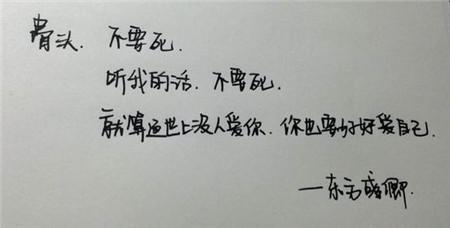 骨头、不要死、
听我的话、不要死、
就算这世上没人爱你、你也要好好爱自己、
——东方盛卿、